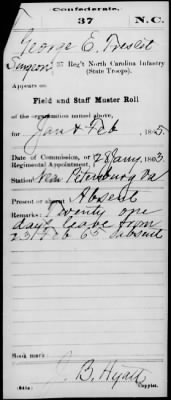 Confederate.
37 N.C.
George E. Treslet
Surgeon, 37 Reg't North Carolina Infantry
(State Troops).
Appears on
Field and Staff Muster Roll
of the organization named above,
for Jan & Feb, 1865.
Date of Commission, or
Regimental Appointment, 28 Jany, 1863.
Station Near Petersburg Va
Present or absent Absent
Remarks: Twenty one
days leave from
23 Feb 65 absent
Book mark:
J. B. Hyatt
Copyist.